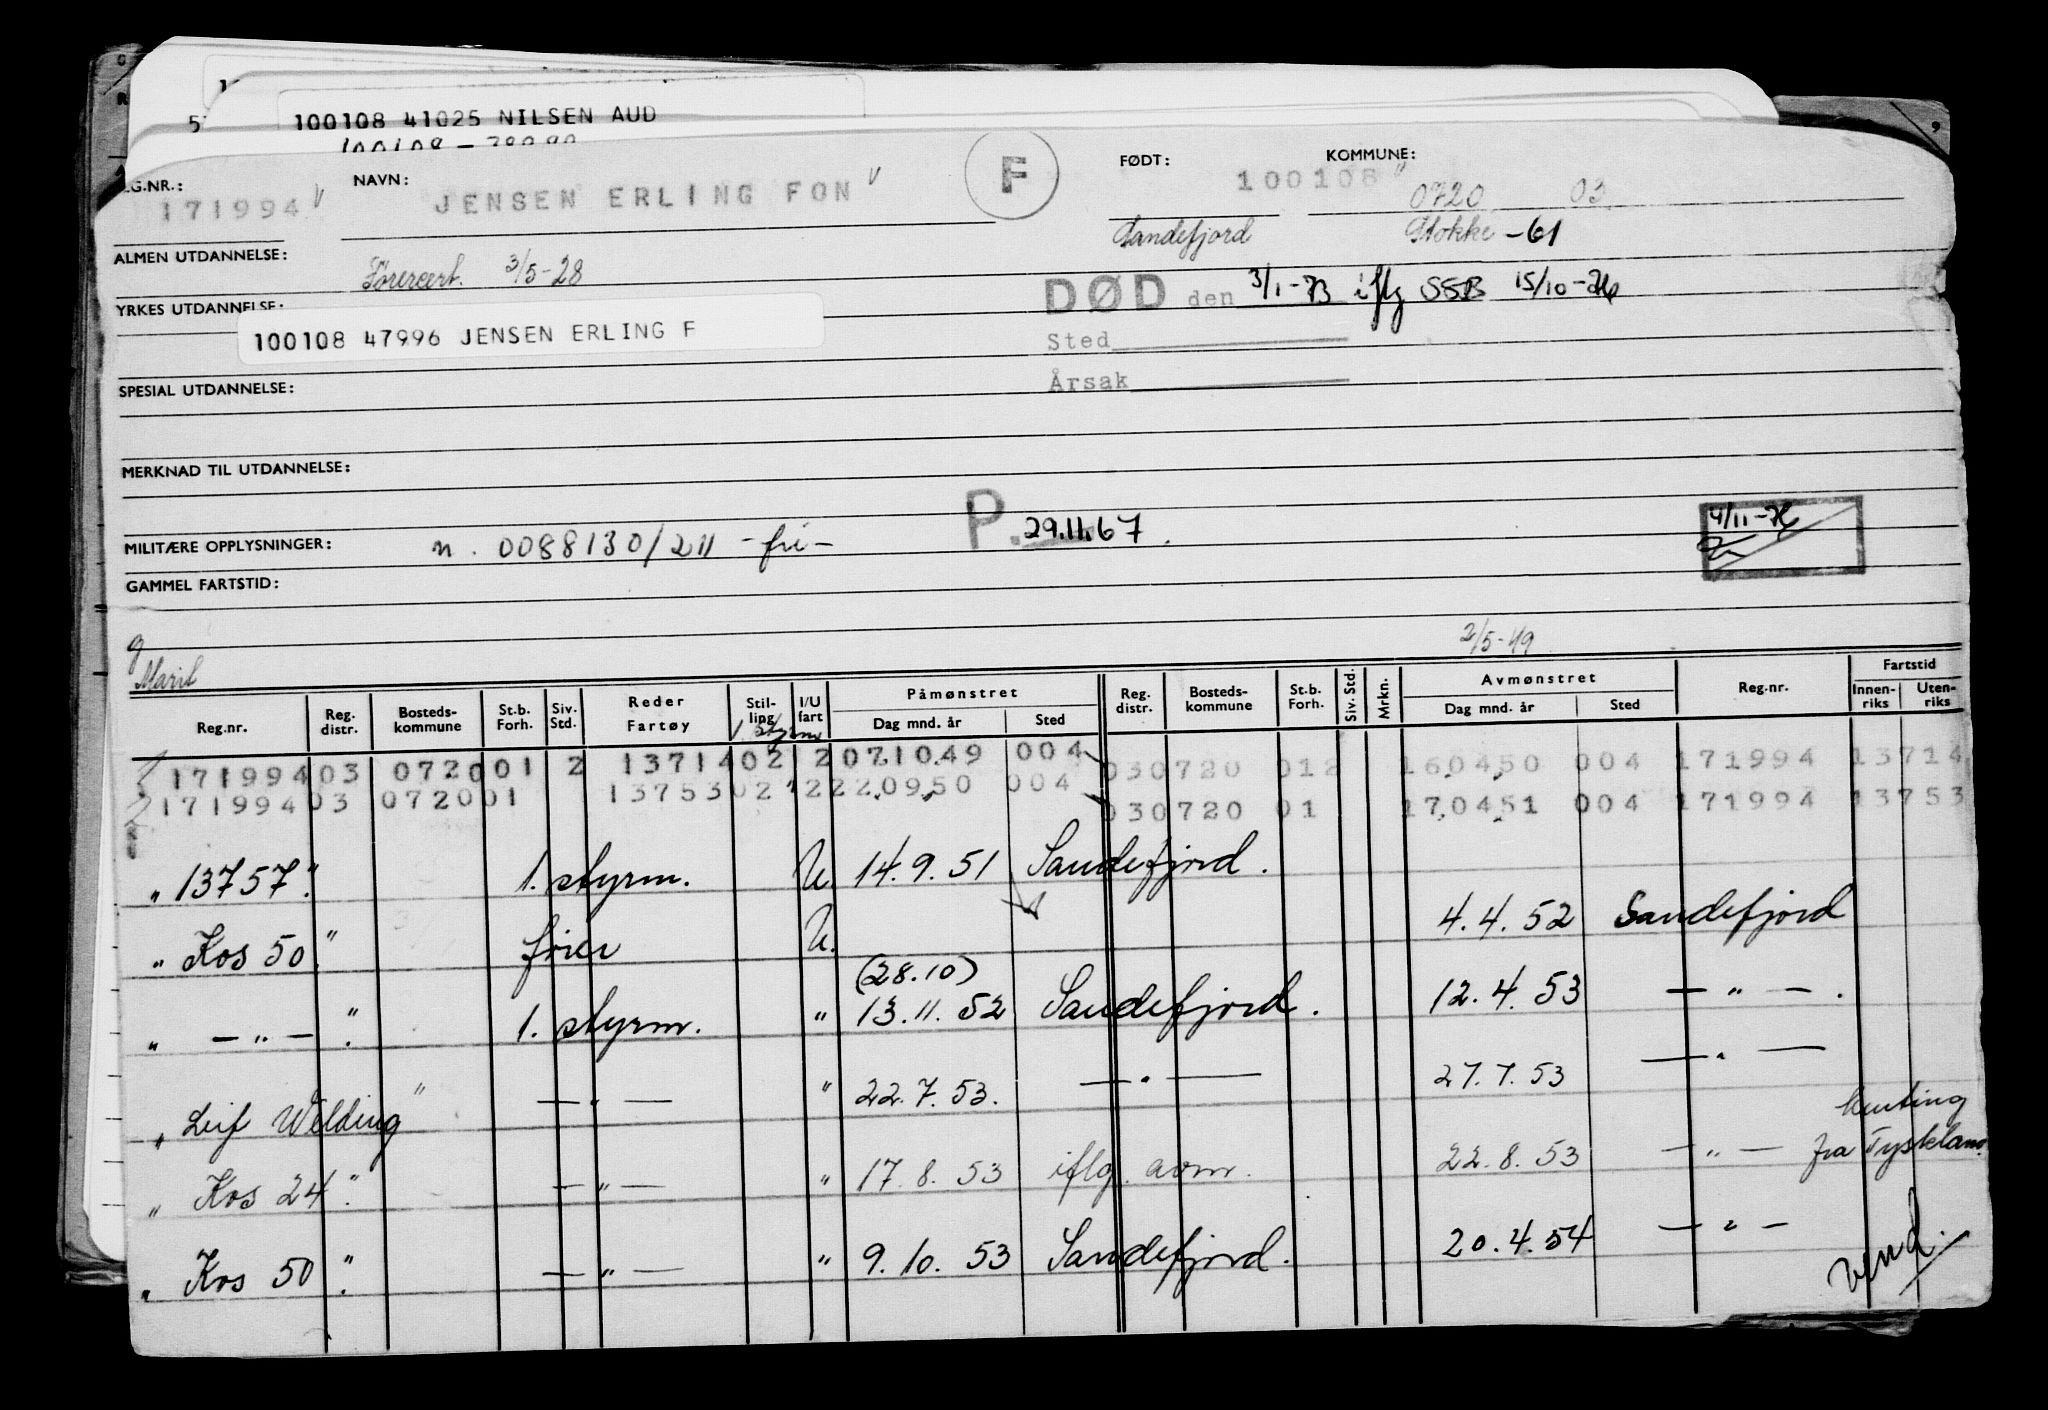 100108 41025 NILSEN AUD
REG.NR.: NAVN: F FØDT: KOMMUNE:
171994 v JENSEN ERLING FON v 100108 " 0720 03
Sandefjord Stokke - 61
ALMEN UTDANNELSE: Førercert. 3/5-28
DØD den 3/1-73 iflg SSB 15/10-76
YRKES UTDANNELSE:
100108 47996 JENSEN ERLING F
Sted
Årsak
SPESIAL UTDANNELSE:
MERKNAD TIL UTDANNELSE:
P. 29.11.67.
4/11-76
MILITÆRE OPPLYSNINGER: n. 0088130/211 - fri -
GAMMEL FARTSTID:
g
Marit
2/5-49
Reg.nr. Reg. distr. Bosteds-kommune St.b. Forh. Siv. Std. Reder Fartøy Stil-ling I/U fart Påmønstret Dag mnd. år Sted Reg. distr. Bosteds-kommune St.b. Forh. Siv. Std. Mrkn. Avmønstret Dag mnd. år Sted Reg.nr. Fartstid Innen-riks Uten-riks
1. styrm
171994 03 0720 01 2 13714 02 2 071049 004 030720 012 160450 004 171994 13714
171994 03 0720 01 13753 02 2 220950 004 030720 01 170451 004 171994 13753
" 13757 " 1. styrm. U. 14.9.51 Sandefjord.
" Kos 50 " fører U. 4.4.52 Sandefjord
(28.10)
" — " — " 1. styrm. " 13.11.52 Sandefjord. 12.4.53 — " — .
" Leif Welding " — " — " 22.7.53. — " — 27.7.53 — " —
henting
" Kos 24 " — " — " 17.8.53 iflg. avm. 22.8.53 — " — fra Tyskland.
" Kos 50 " — " — " 9.10.53 Sandefjord. 20.4.54 — " —
vend.